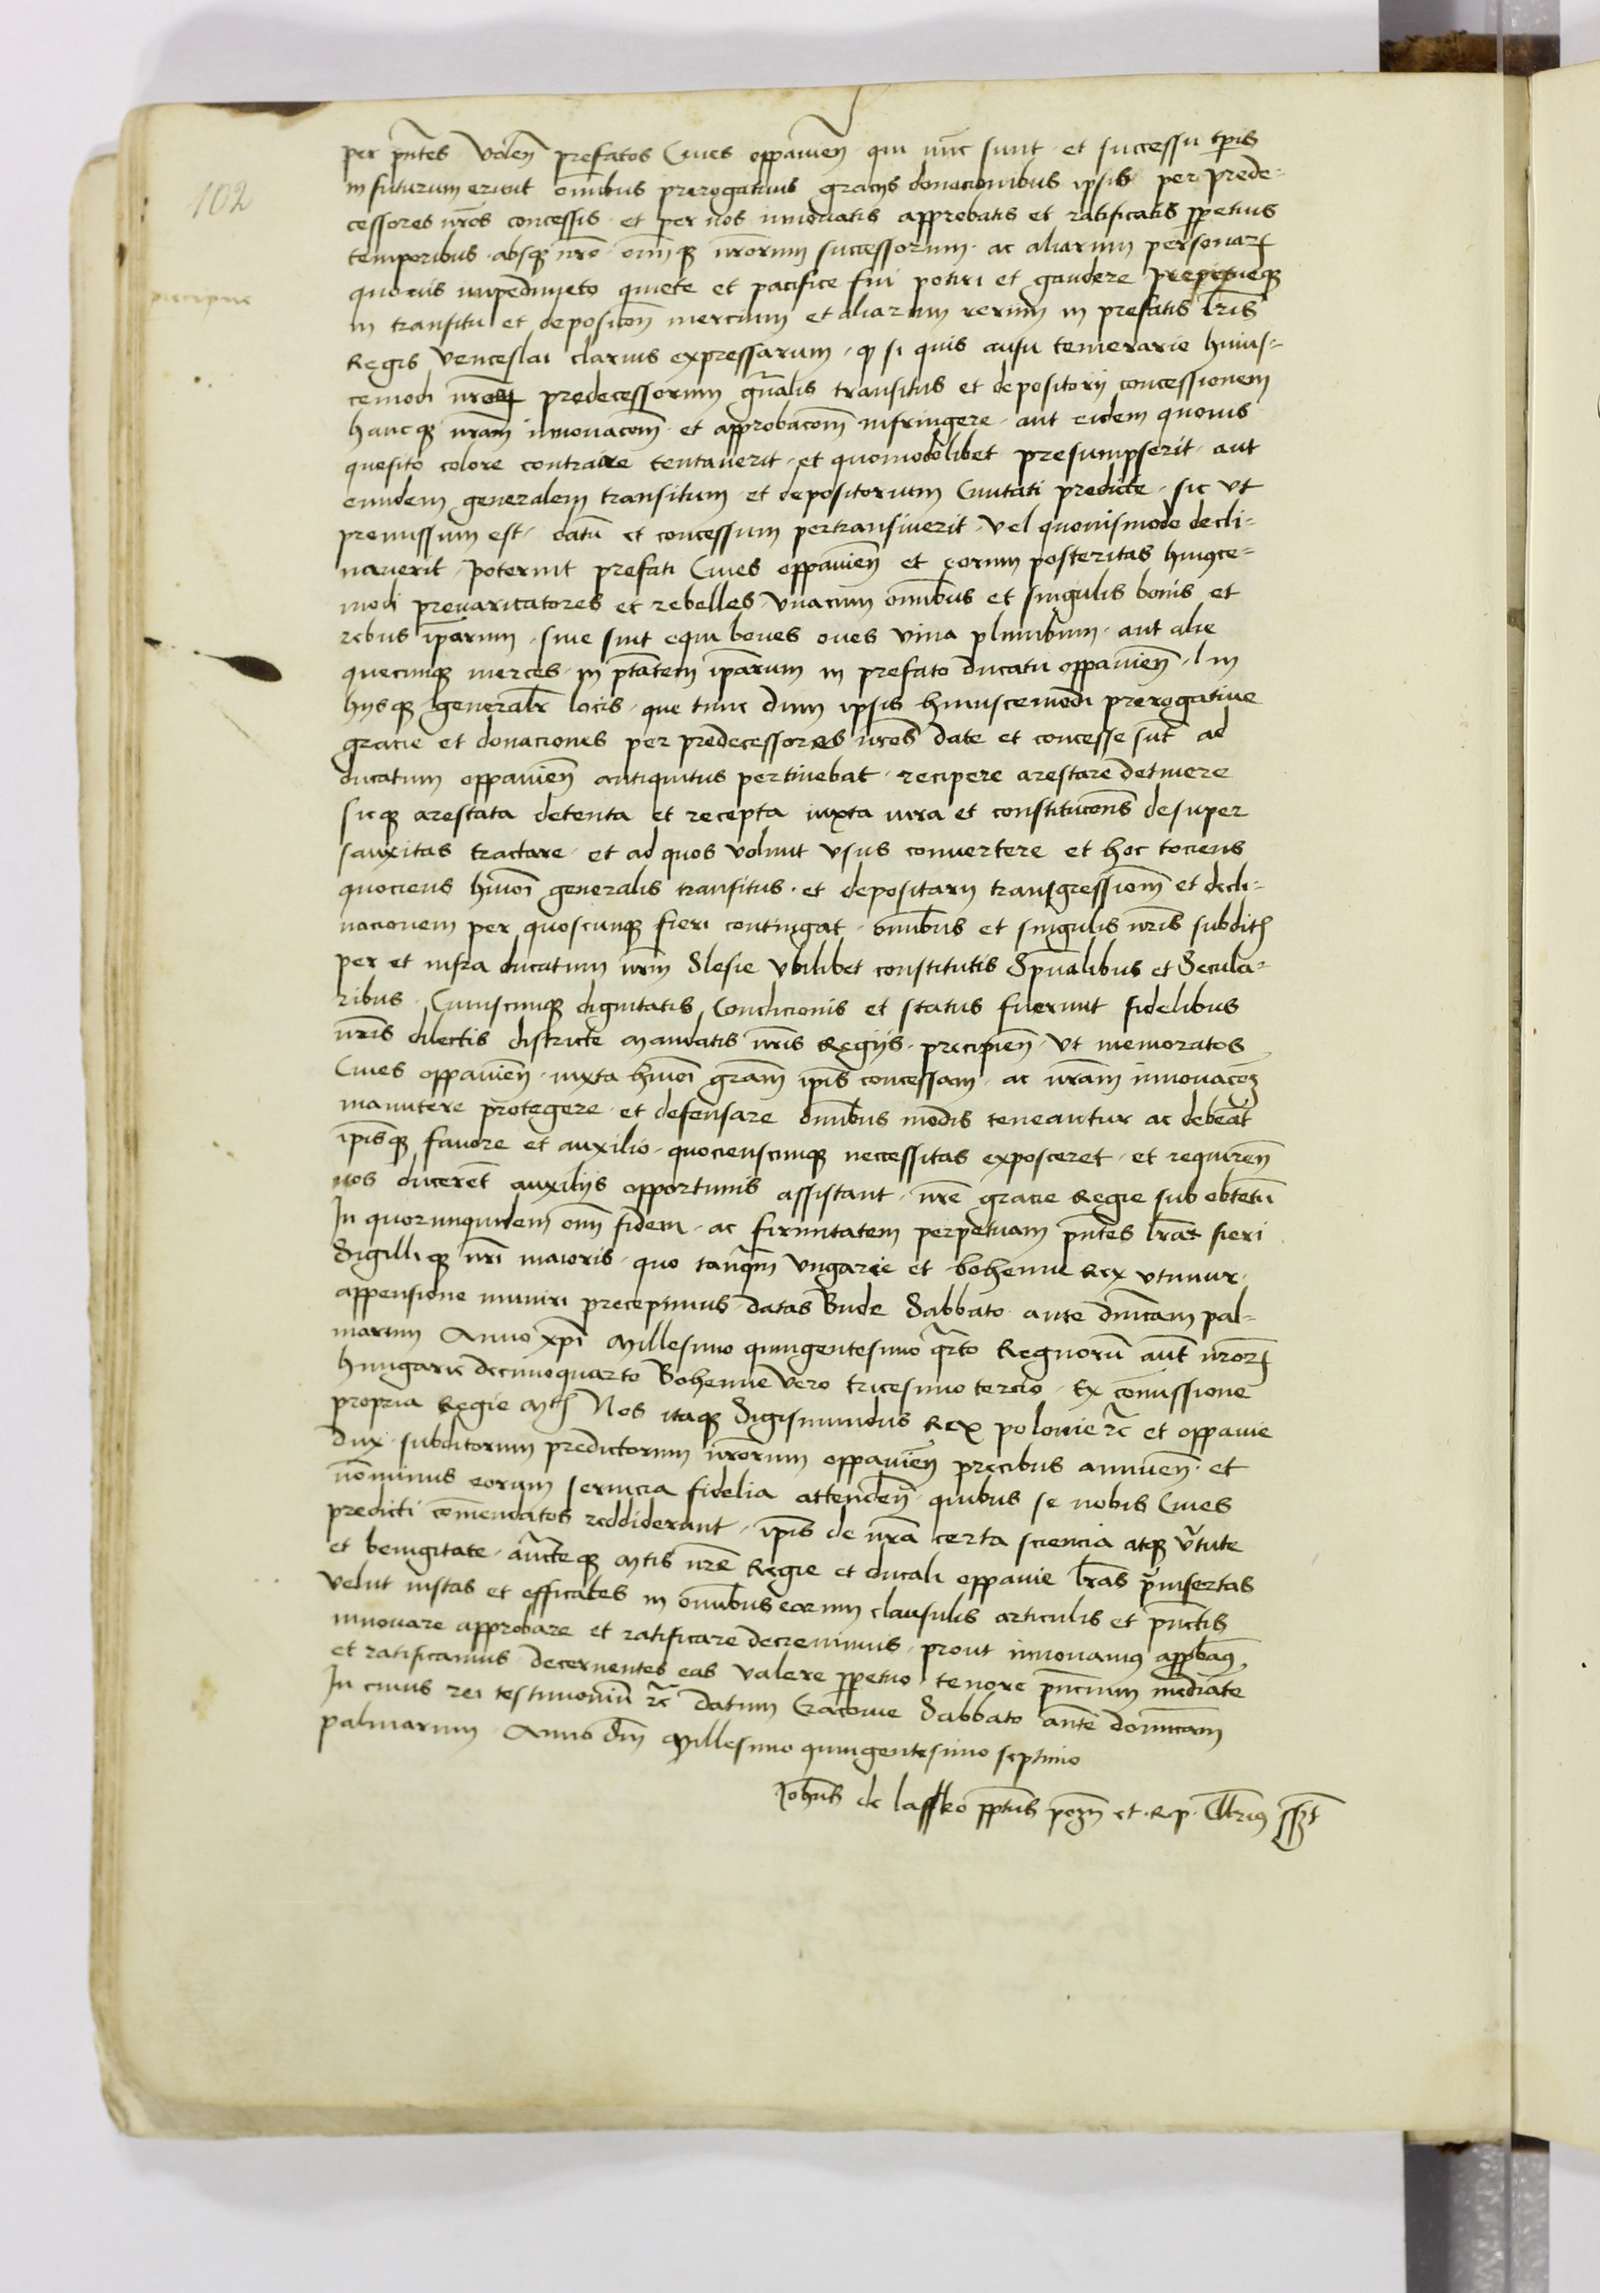 102
per pñtes Volen̄ prefatos Ciues oppauien̄ qui nūc sunt et successu tp̄is
in futurum erunt om̄ibus prerogatiuis gracijs donacionibus ipsis per prede-
cessores nr̄os concessis et per nos innouatis approbatis et ratificatis ꝑpetuis
temporibus absq̷ nr̄o om̄iq̷ nr̄orum successorum ac aliarum personarꝝ
quouis impedimeto quiete et pacifice frui potiri et gaudere precipueq̷
precipue
in transitu et deposicōn̄ mercium et aliarum rerum in prefatis lr̄is
Regis Venceslai clarius expressarum, ꝙ si quis ausu temerarie huius-
cemodi nr̄orꝝ predecessorum gn̄alis transitus et depositorij concessionem
hancq̷ nr̄am innouacōm̄ et approbacōm̄ infringere aut eidem quouis
quesito colore contraire tentauerit et quomodolibet presumpserit aut
eundem generalem transitum et depositorium Ciuitati predicte sic vt
premissum est, datū et concessum pertransiuerit Vel quouismodo decli-
nauerit, poterint prefati Ciues oppauien̄ et eorum posteritas huiꝰce-
modi preuaricatores et rebelles, Vnacum om̄ibus et singulis bonis et
rebus ip̄arum, siue sint equi boues oues vina plumbum aut alie
quecunq̷ merces in ptātem ip̄arum in prefato ducatu oppauien̄, l in
hysq̷ generalr̄ locis, que tunc dum ipsis huiuscemodi prerogatiue
gracie et donaciones per predecessores nr̄os date et concesse sūt ad
ducatum oppauien̄ antiquitus pertinebat, recipere arestare detinere
sicq̷ arestata detenta et recepta iuxta iura et constitucōn̄s desuper
sanxitas tractare et ad quos volunt vsus conuertere et hoc tociens
quociens hm̄oi generalis transitus et depositarij transgressiom̄ et decli-
nacionem per quoscunq̷ fieri contingat, om̄ibus et singulis nr̄is subditꝭ
per et infra ducatum nr̄m Slesie Vbilibet constitutis Sp̄ualibus et Secula-
ribus Cuiuscunq̷ dignitatis Condicionis et status fuerunt fidelibus
nr̄is dilectis districte Mandatis nr̄is Regijs precipien̄ vt memoratos
Ciues oppauien̄ iuxta hm̄oi gr̄am ip̄is concessam ac nr̄am innouacōꝫ
manutere protegere et defensare om̄ibus modis teneantur ac debeāt
ip̄isq̷ fauore et auxilio quocienscunq̷ neccessitas exposceret et requiren̄
nos ducerēt auxilijs opportunis assistant, nr̄e gracie Regie sub obtētū
In quorumquidem om̄ fidem ac firmitatem perpetuam pñtes lr̄as fieri
Sigilliq̷ nr̄i maioris quo tanq̄m Vngarie et bohemie Rex vtimur
appensione muniri precepimus datas Bude Sabbato ante dn̄icam pal-
marum Anno xp̄i Millesimo quingentesimo q̄rto Regnorū aūt nr̄orꝝ
hungarie decimoquarto Bohemie Vero tricesimo tercio, Ex cōmissione
propria Regie Mtꝭ Nos itaq̷ Sigismundus Rex polonie ꝛc̄ et oppauie
dux subditorum predictorum nr̄orum oppauien̄ precibus annuen̄ et
nōminus eorum seruicia fidelia attenden̄ quibus se nobis Ciues
predicti cōmendatos reddiderunt, ip̄is de nr̄a certa sciencia atq̷ v̄tute
et benigitate, auc̄teq̷ Mtis nr̄e Regie et ducali oppauie lr̄as p̄insertas
velut iustas et efficaces in om̄ibus earum clausulis articulis et pūctis
innouare approbare et ratificare decreuimus, prout innouamꝰ app̄bamꝰ
et ratificamus decernentes eas valere ꝑpetuo tenore pñcium mediāte
In cuius rei testimoniū ꝛc̄ datum Cracouie Sabbato ante dominicam
palmarum Anno dn̄i Millesimo quingentesimo septimo
Joh̄es de lassko pp̄tus pozn̄ et R p. Cll̄riꝰ ssꝫt